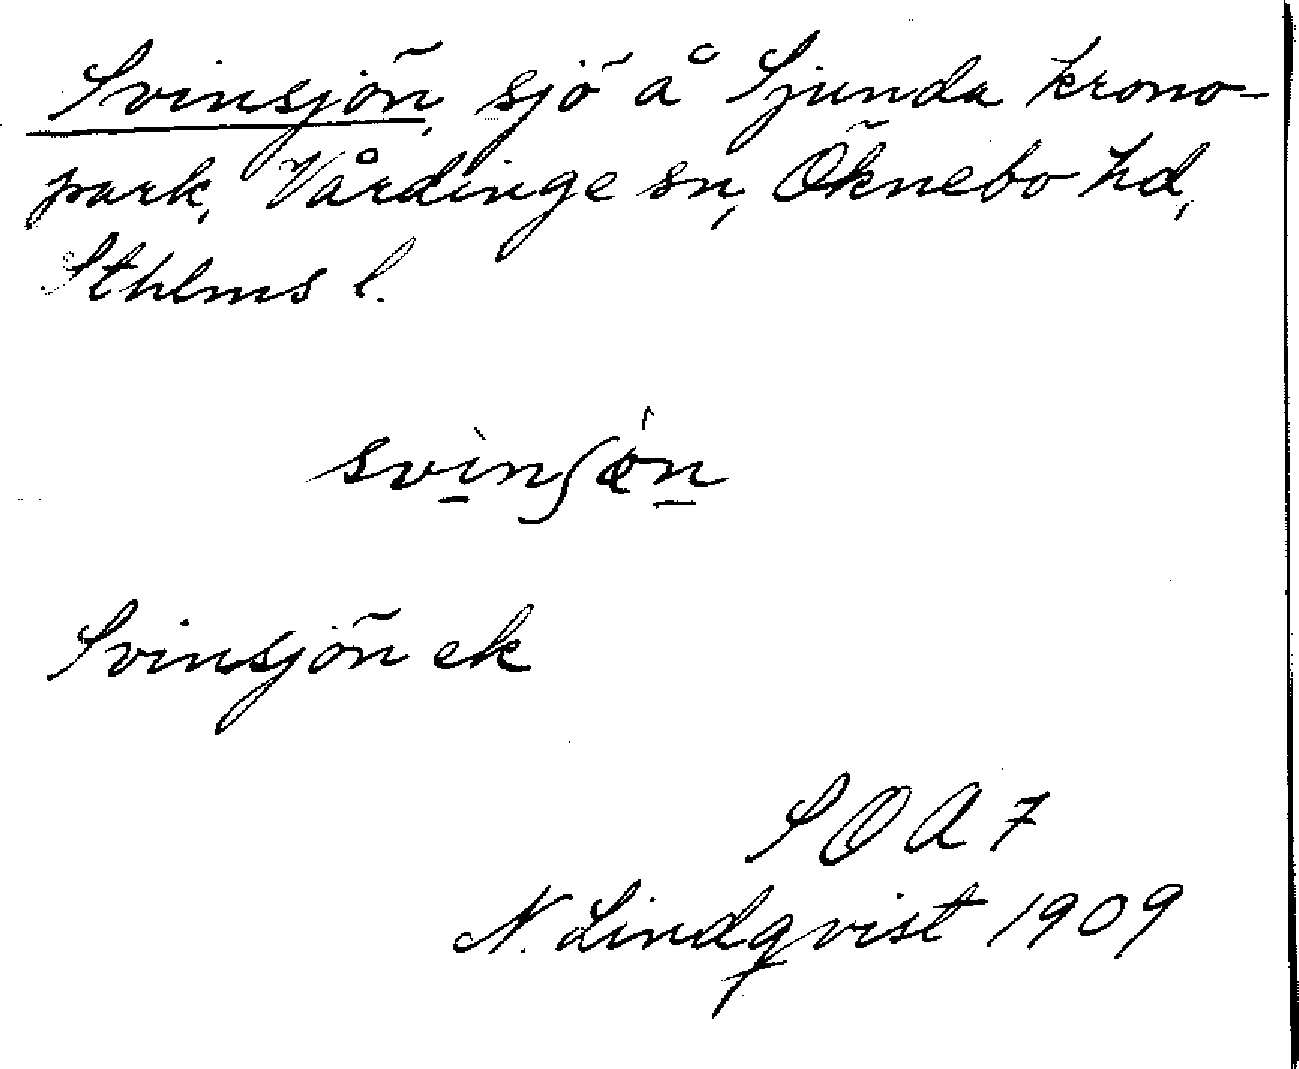 Svinsjön, sjö å Sjunda krono-
park, Vårdinge sn, Öknebo hd,
Sthlms l.
svì̲nʃǿn̲
Svinsjön ek
SOA 7
N. Lindqvist 1909